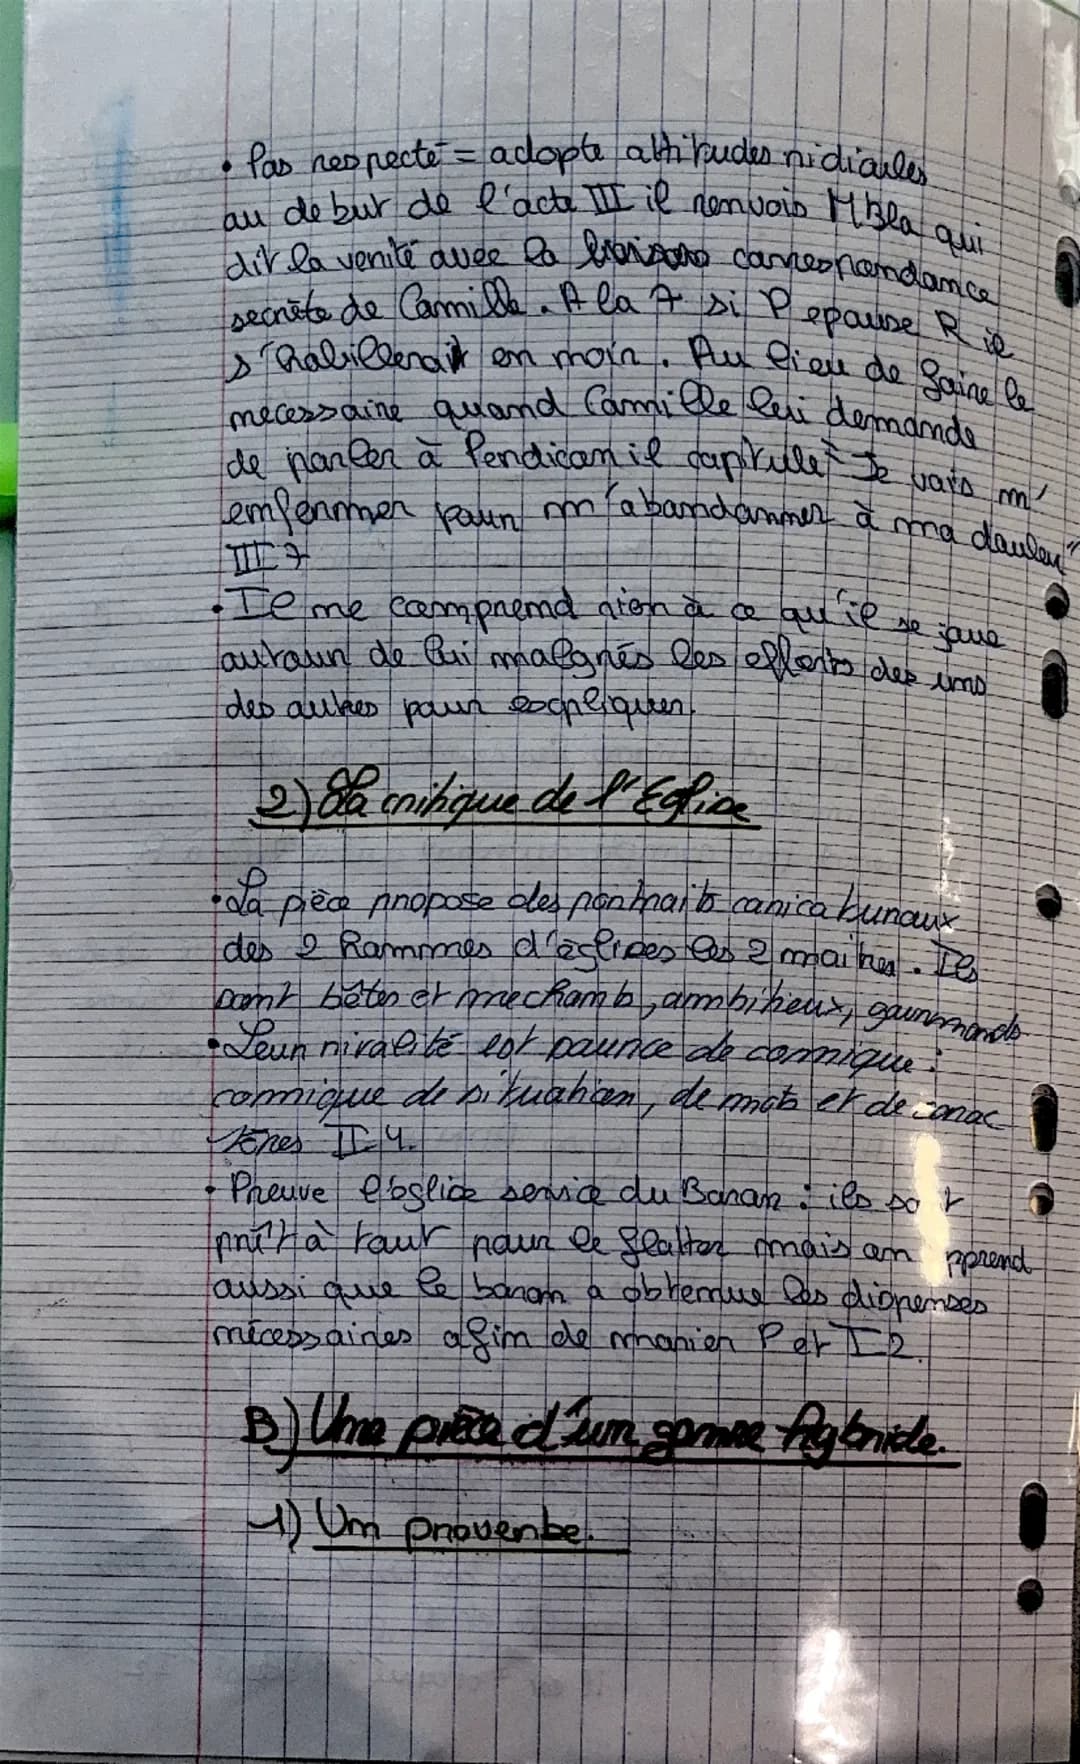 • Pas respecté = adopte attitudes ridicules
au debut de l'acte III il renvois MBla qui
dit la verité avec la correspondance
secrète de Camille. A la 7 si P epouse R il
s'habillerait en noir. Au lieu de faire le
necessaire quand Camille lui demande
de parler à Perdican il capitule "Je vais m'
enfermer pour m'abandonner à ma douleur"
III 7
• Il ne comprend rien à ce qu'il se joue
autour de lui malgrés les efforts des uns
des autres pour expliquer.
2) La critique de l'Eglise
• La pièce propose des portraits caricaturaux
des 2 hommes d'églises les 2 maitres. Ils
sont bêtes et mechants, ambitieux, gourmands
• Leur rivalité est source de comique :
comique de situation, de mots et de carac
tères II 4.
• Preuve l'église service du Baron : ils sont
prêt à tout pour le flatter mais on apprend
aussi que le baron a obtenue les dispenses
nécessaires afin de marier P et I 2.
B) Une pièce d'un genre hybride.
1) Un proverbe.